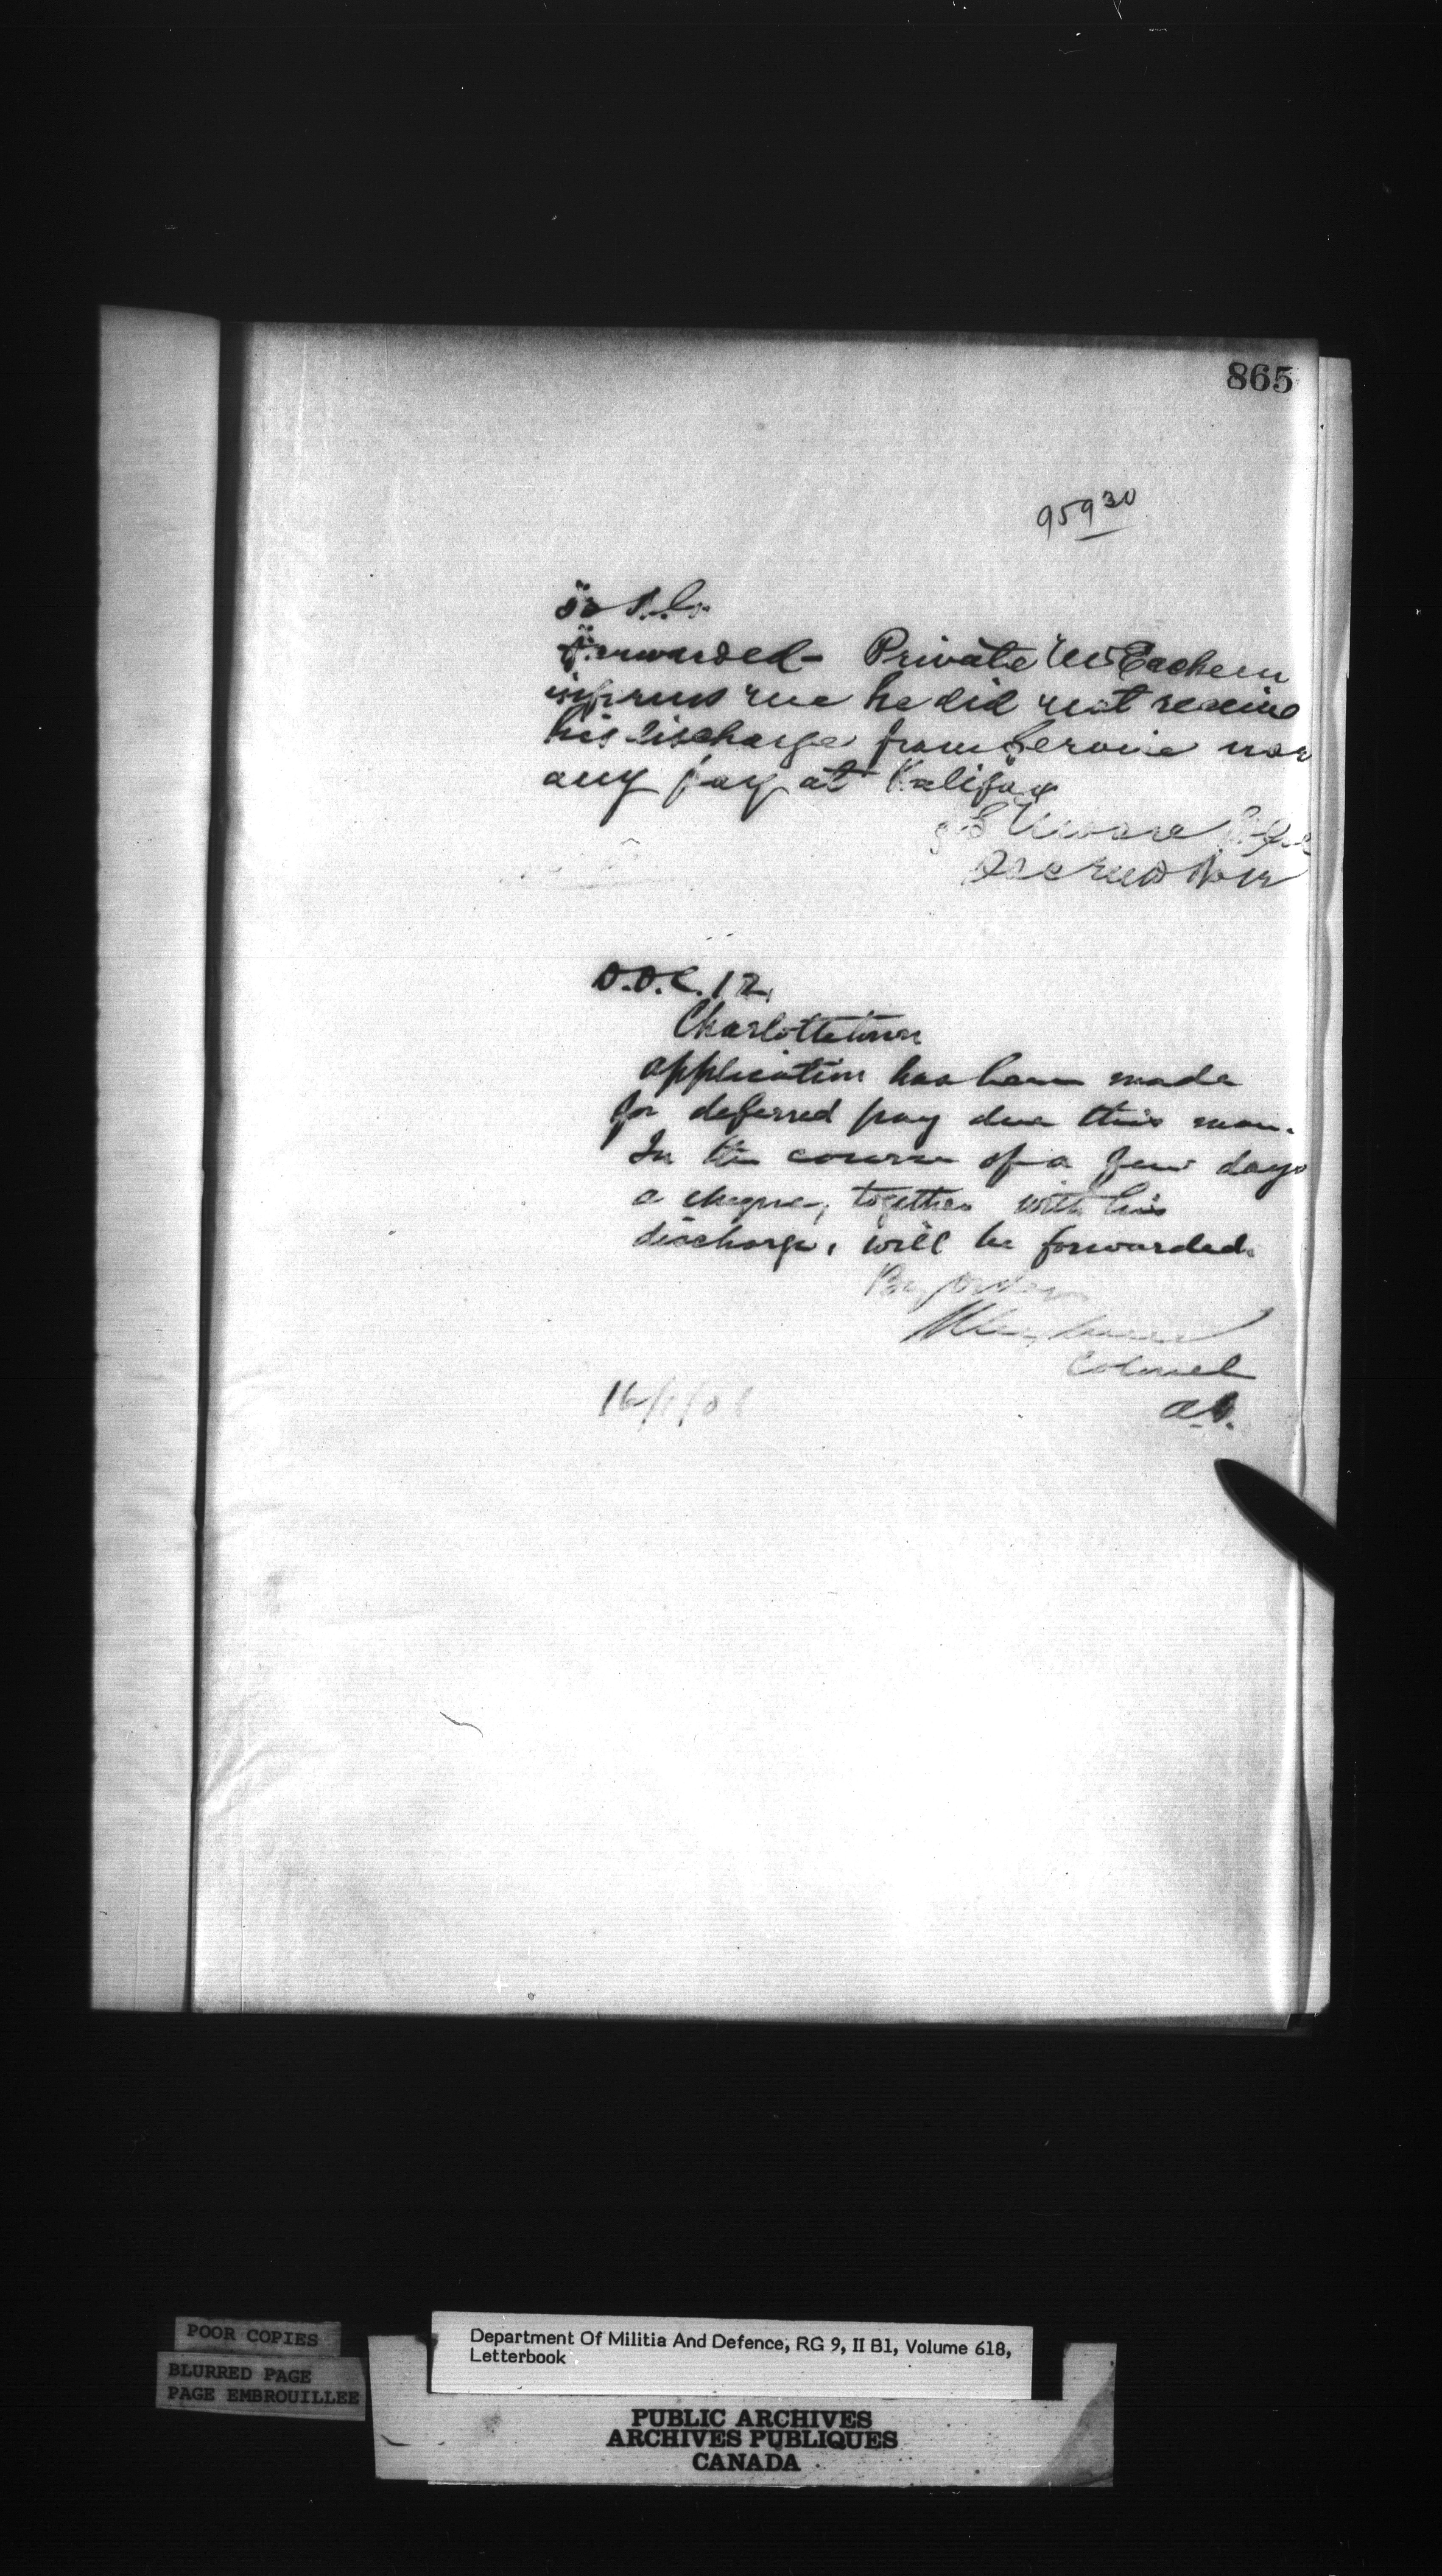 865
959 30
Forwarded - Private McEachern
informs me he did not receive
his discharge from Service nor
any pay at Halifax
Moore
D.O.C. 12.
Charlottetown
Application has been made
for deferred pay due this man.
In the course of a few days
a cheque, together with his
discharge, will be forwarded.
By Order
Colonel
16/1/01
POOR COPIES
BLURRED PAGE
PAGE EMBROUILLEE
Department Of Militia And Defence, RG 9, II B1, Volume 618,
Letterbook
PUBLIC ARCHIVES
ARCHIVES PUBLIQUES
CANADA